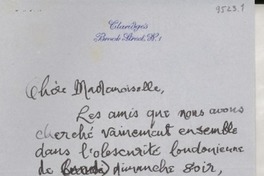 9523.1
Claridge's
Brook Street, W.1
Chère Mademoiselle,
Les amis que nous avons
cherché vainement ensemble
dans l'obscurité londonienne
de dimanche soir,